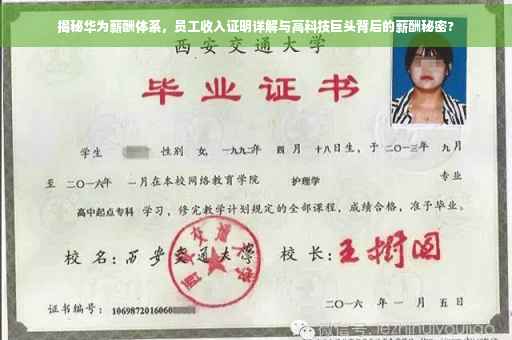 揭秘华为薪酬体系，员工收入证明详解与高科技巨头背后的薪酬秘密?
西安交通大学
毕业证书
学生 性别 女, 一九九二年 四月 十八日生，于 二〇一三年 九月
至 二〇一六年 一月在本校网络教育学院 护理学 专业
高中起点专科 学习，修完教学计划规定的全部课程，成绩合格，准予毕业。
校名: 西安交通大学 校长: 王树国
证书编号: 1069872016060
二〇一六 年 一 月 五 日
微信号: jiezhinuiyoujiao